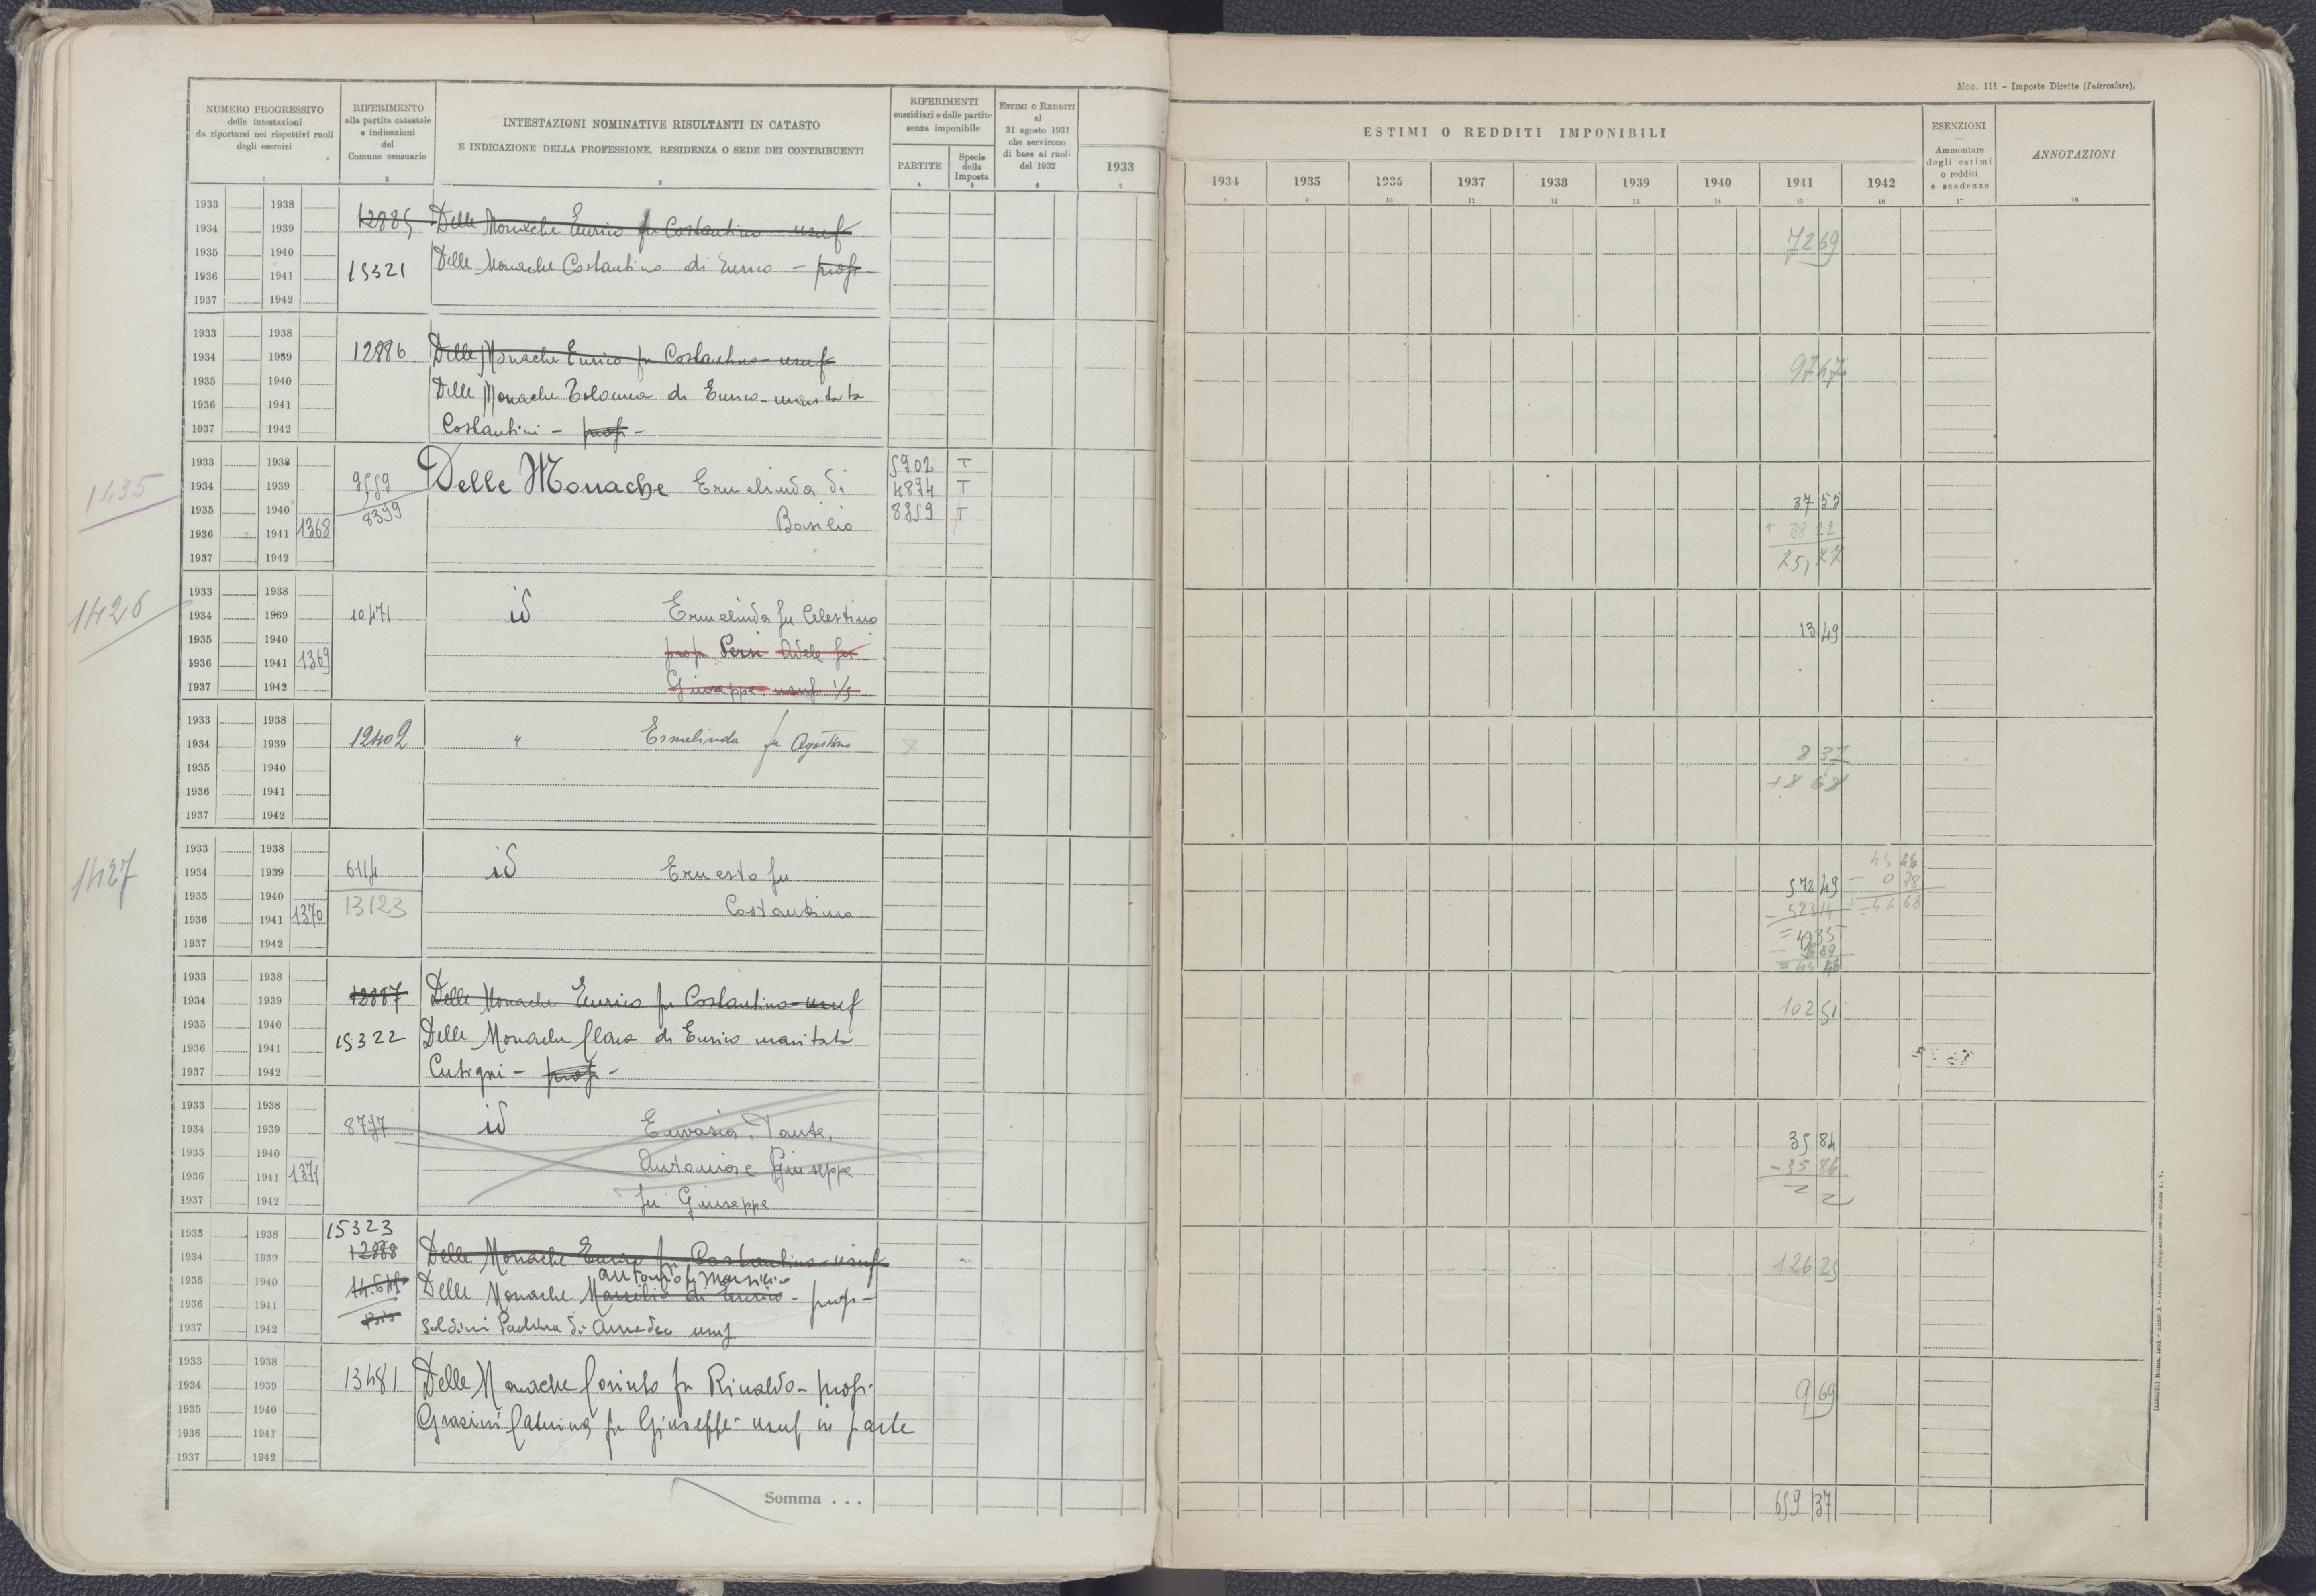 Mod. 111 – Imposte Dirette (Intercalare).
NUMERO PROGRESSIVO
delle intestazioni
da riportarsi nei rispettivi ruoli
degli esercizi
1
RIFERIMENTO
alla partita catastale
e indicazioni
del
Comune censuario
2
INTESTAZIONI NOMINATIVE RISULTANTI IN CATASTO
E INDICAZIONE DELLA PROFESSIONE, RESIDENZA O SEDE DEI CONTRIBUENTI
3
RIFERIMENTI
sussidiari e delle partite
senza imponibile
PARTITE
4
Specie
della
Imposta
5
ESTIMI O REDDITI
al
31 agosto 1931
che servirono
di base ai ruoli
del 1932
6
1933
7
ESTIMI O REDDITI IMPONIBILI
1934 1935 1936 1937 1938 1939 1940 1941 1942
8 9 10 11 12 13 14 15 16
ESENZIONI
—
Ammontare
degli estimi
o redditi
e scadenze
17
ANNOTAZIONI
18
1933 1938
1934 1939 12885 Delle Monache Enrico fu Costantino usuf 72 69
1935 1940
1936 1941 15321 Delle Monache Costantino di Enrico – prop
1937 1942
1933 1938
1934 1939 12886 Delle Monache Enrico fu Costantino – usuf 97 47
1935 1940
1936 1941 Delle Monache Tolomea di Enrico – maritata
1937 1942 Costantini – prop –
1435
1933 1938 5902 T
1934 1939 9559 Delle Monache Ermelinda di 4894 T 37 55
1935 1940 8399 Basilio 8859 T
1936 1941 1368 38 22
1937 1942
1426
1933 1938
1934 1939 10471 id Ermelinda fu Celestino 13 49
1935 1940 prop Persi Adele fu
1936 1941 1369
1937 1942 Giuseppe usuf 1/3
1933 1938
1934 1939 12402 " Ermelinda fu Agostino 8 37
1935 1940 + 8 68
1936 1941
1937 1942
1427
1933 1938 45 46
1934 1939 6114 id Ernesto fu 572 49 – 0 78
1935 1940 13123 Costantino – 523 14 = 44 68
1936 1941 1370 = 49 35
1937 1942 = 45 46
1933 1938
1934 1939 12887 Delle Monache Enrico fu Costantino – usuf 102 51
1935 1940
1936 1941 15322 Delle Monache Clara di Enrico maritata
1937 1942 Cutigni – prop –
1933 1938
1934 1939 8777 id Eurasia, Dante, 35 84
1935 1940 Antonia e Giuseppe – 35 84
1936 1941 1371
1937 1942 fu Giuseppe
1933 1938 15323
1934 1939 12888 Delle Monache Enrico fu Costantino – usuf 126 25
1935 1940 Antonio di Marsilio
1936 1941 Delle Monache Marsilio di Enrico – prop –
1937 1942 Soldini Paolina di Amedeo usuf
1933 1938
1934 1939 13481 Delle Monache Corinto fu Rinaldo – prop – 9 69
1935 1940
1936 1941 Grazini Caterina fu Giuseppe – usuf in parte
1937 1942
Somma . . . 659 37